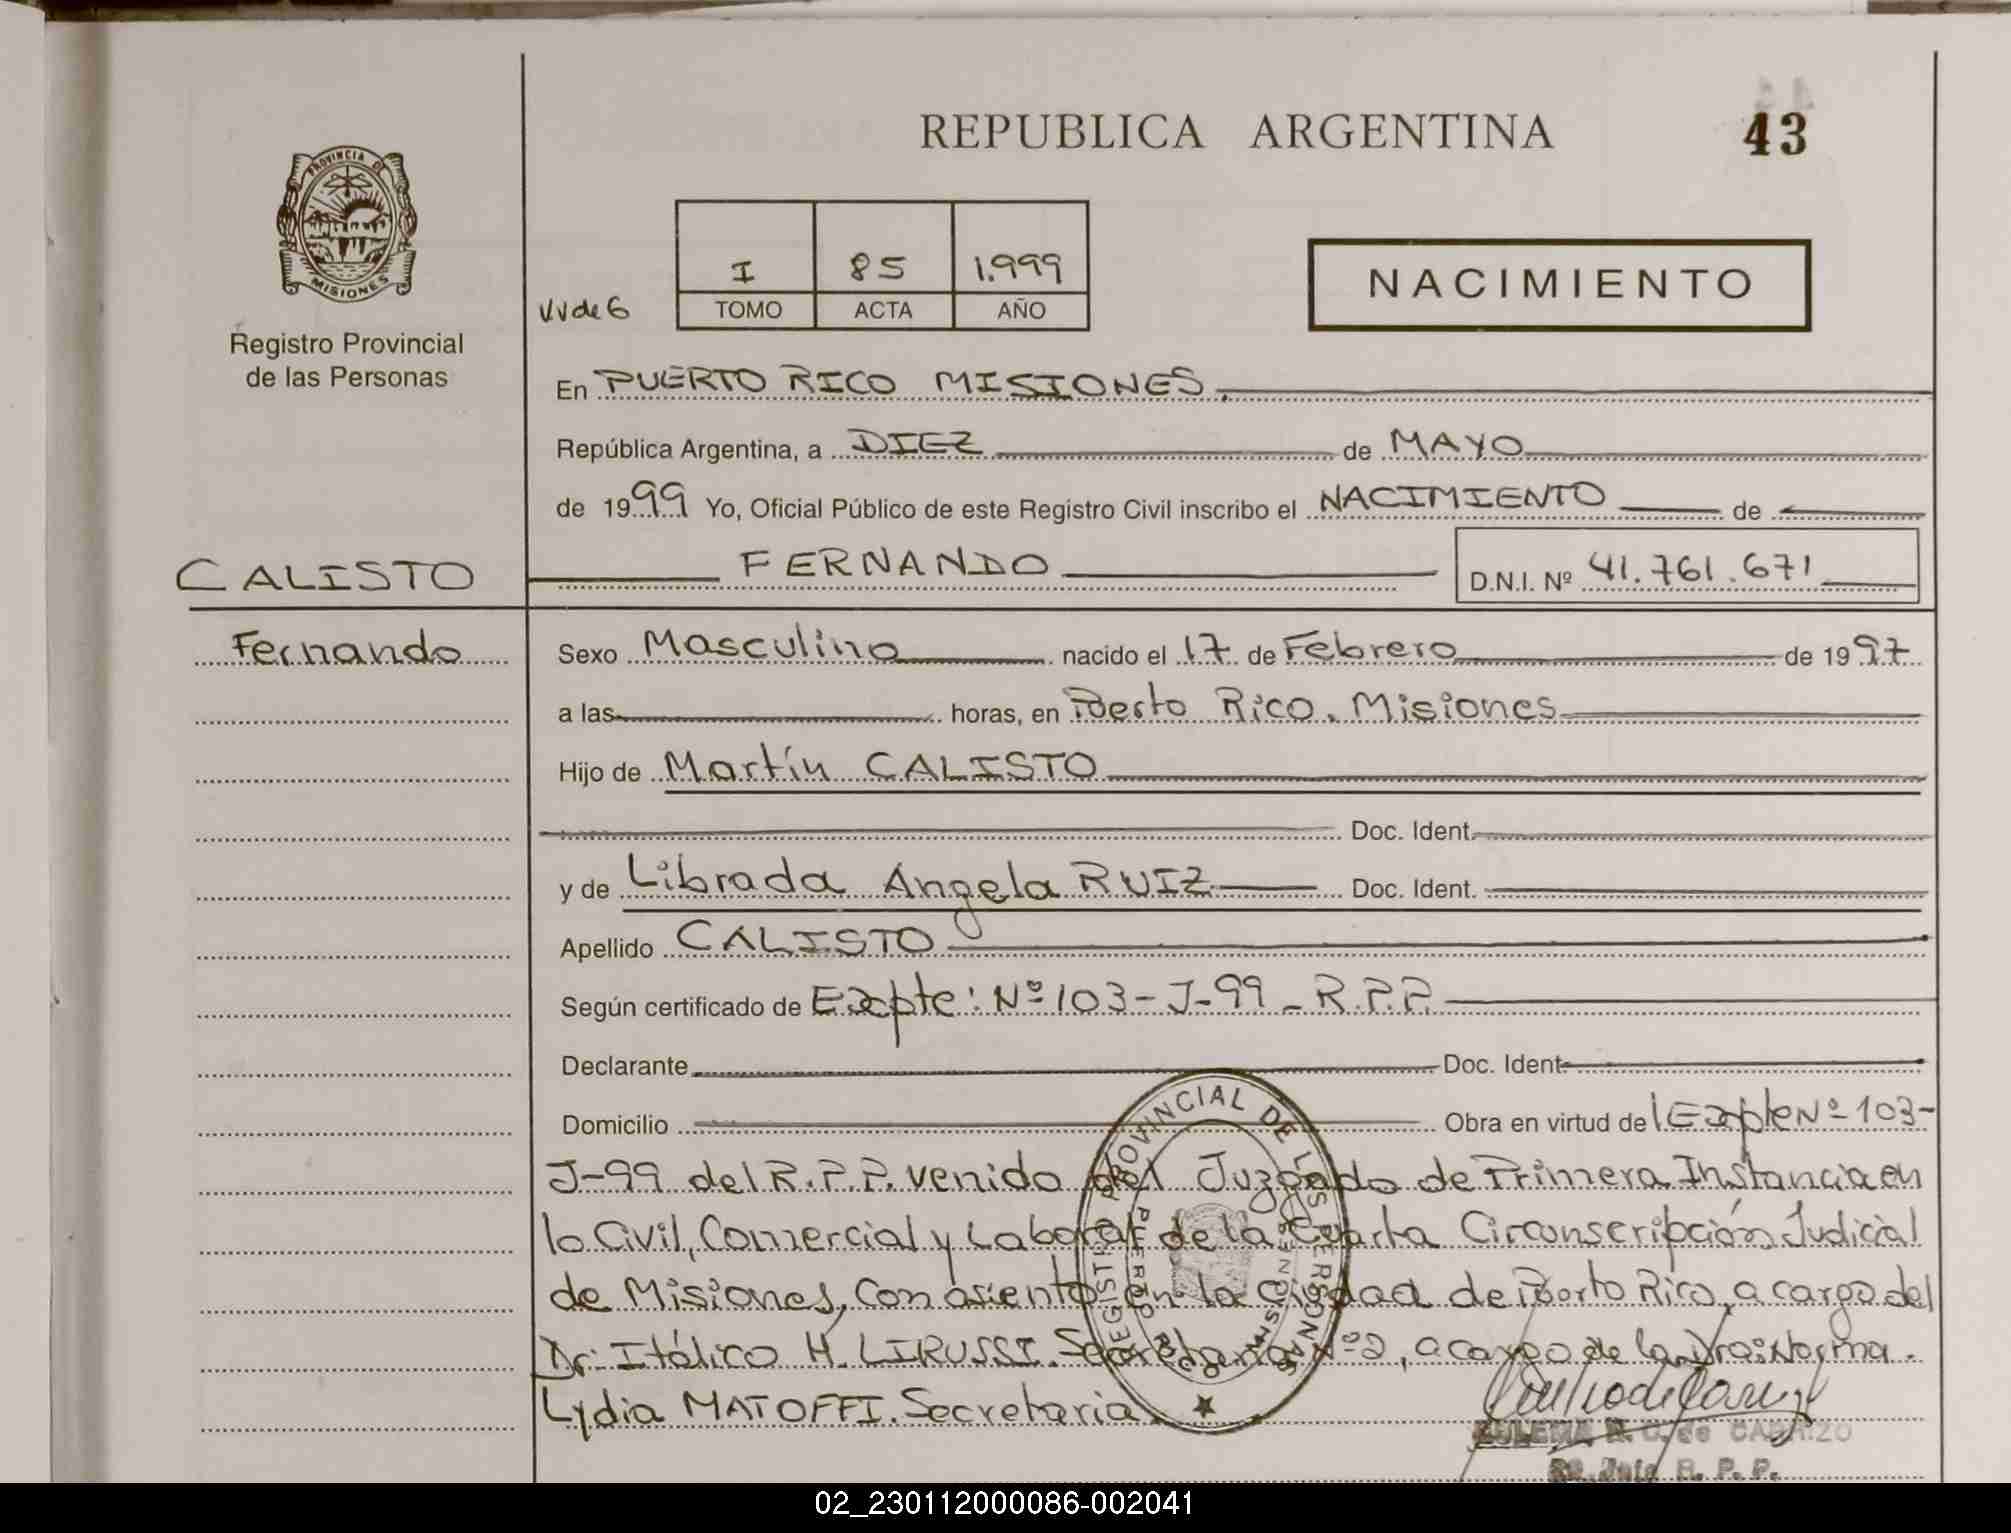 REPUBLICA ARGENTINA
43
PROVINCIA DE
MISIONES
Registro Provincial
de las Personas
I 85 1.999
TOMO ACTA AÑO
NACIMIENTO
En PUERTO RICO MISIONES.
República Argentina, a DIEZ de MAYO
de 1999 Yo, Oficial Público de este Registro Civil inscribo el NACIMIENTO de
CALISTO FERNANDO D.N.I. Nº 41.761.671
Fernando Sexo Masculino nacido el 17 de Febrero de 1997
a las horas, en Puerto Rico. Misiones
Hijo de Martín CALISTO
Doc. Ident.
y de Librada Angela RUIZ Doc. Ident.
Apellido CALISTO
Según certificado de Expte: Nº 103-J-99 - R.P.P.
Declarante Doc. Ident.
Domicilio Obra en virtud del Expte Nº 103-
J-99 del R.P.P. venido del Juzgado de Primera Instancia en
lo Civil, Comercial y Laboral de la Cuarta Circunscripción Judicial
de Misiones, Con asiento en la Ciudad de Puerto Rico, a cargo del
Dr: Itálico H. LIRUSSI. Secretaria Nº 2, a cargo de la Dra: Norma
Lydia MATOFFI. Secretaria
REGISTRO PROVINCIAL DE LAS PERSONAS
PUERTO RICO MISIONES
ZULEMA R. C. de CARRIZO
R. P. P.
02_230112000086-002041